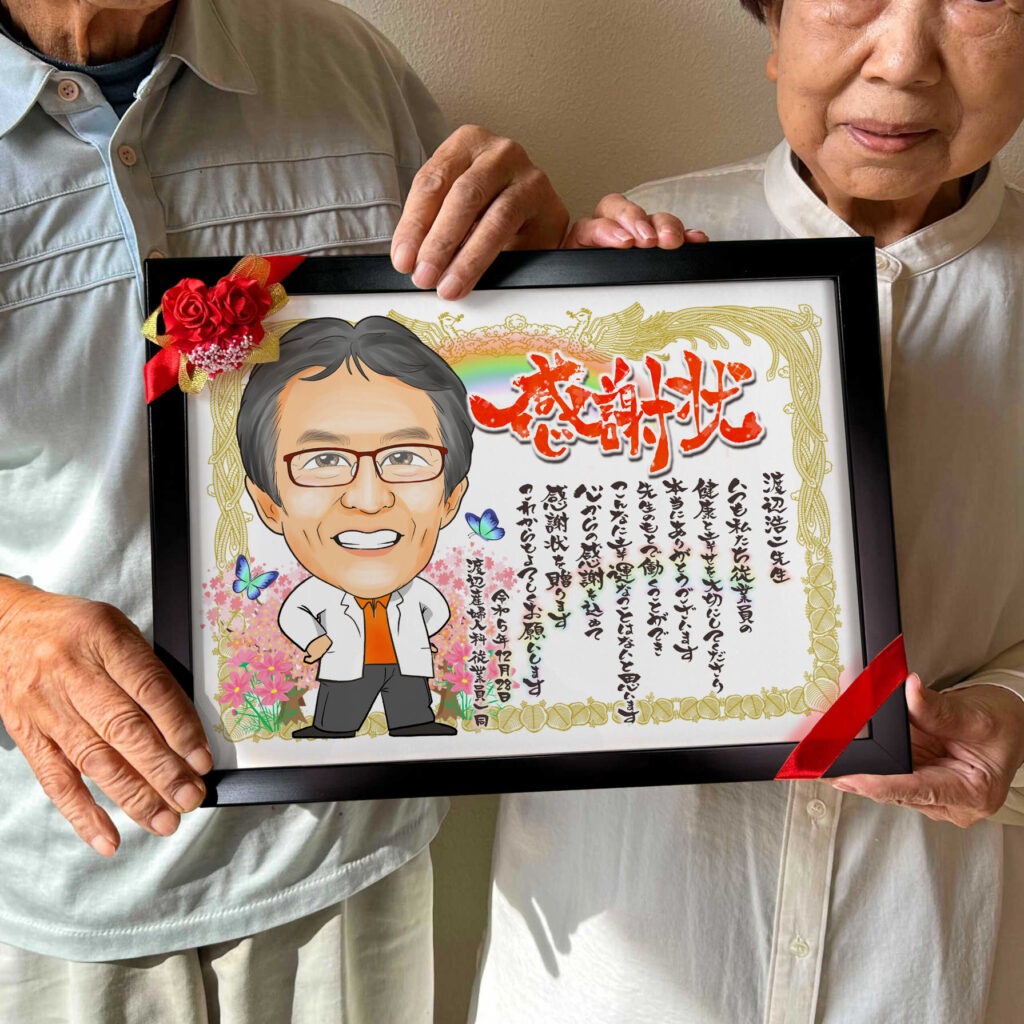 感謝状
渡辺浩一先生
いつも私たち従業員の
健康と幸せを大切にしてくださり
本当にありがとうございます
先生のもとで働くことができ
こんなに幸運なことはないと思います
心からの感謝を込めて
感謝状を贈ります
これからもよろしくお願いします
令和5年12月28日
渡辺産婦人科 従業員一同